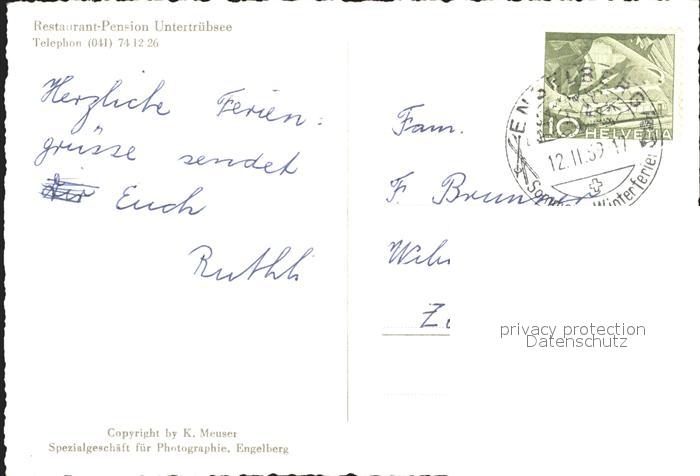 Restaurant-Pension Untertrübsee
Telephon (041) 74 12 26
Herzliche Ferien:
grüsse sendet
Euch
Ruthli
Fam.
F. Brunner
Z
10 HELVETIA
ENGELBERG
12.II.59.17
Sommer Winterferien
privacy protection
Datenschutz
Copyright by K. Meuser
Spezialgeschäft für Photographie, Engelberg